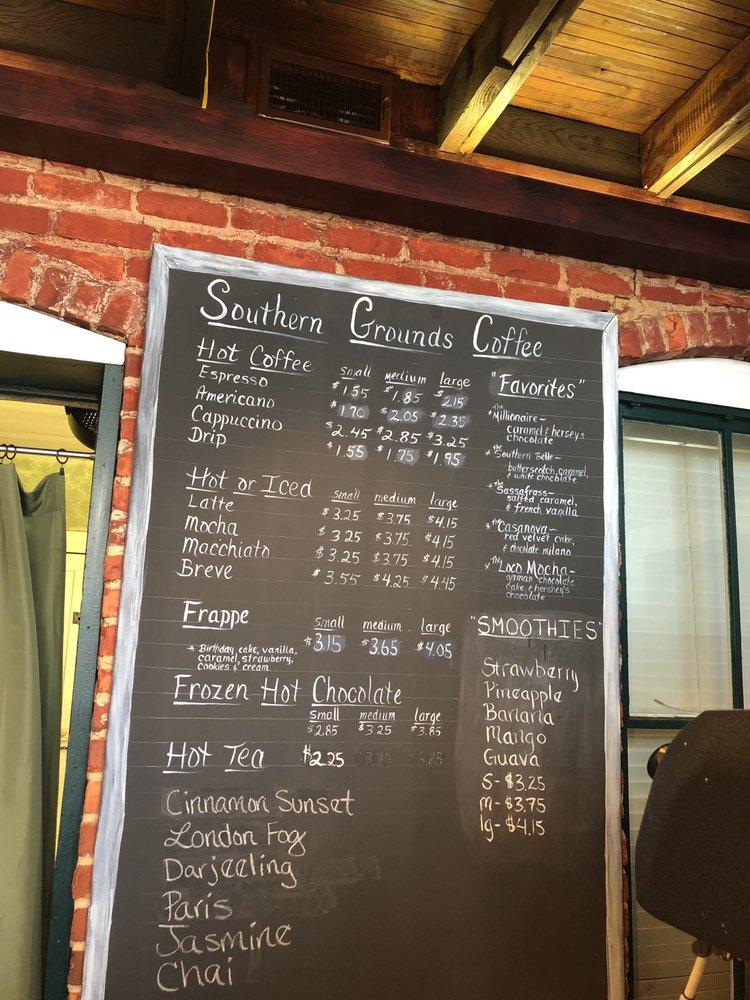 Southern Grounds Coffee
Hot Coffee small medium large
Espresso $1.55 $1.85 $2.15
Americano $1.70 $2.05 $2.35
Cappuccino $2.45 $2.85 $3.25
Drip $1.55 $1.75 $1.95
Hot or Iced small medium large
Latte $3.25 $3.75 $4.15
Mocha $3.25 $3.75 $4.15
Macchiato $3.25 $3.75 $4.15
Breve $3.55 $4.25 $4.45
Frappe small medium large
$3.15 $3.65 $4.05
* Birthday cake, vanilla,
caramel, strawberry,
cookies & cream
Frozen Hot Chocolate
small medium large
$2.85 $3.25 $3.85
Hot Tea $2.25
Cinnamon Sunset
London Fog
Darjeeling
Paris
Jasmine
Chai
"Favorites"
*The Millionaire~
caramel & hersey's
chocolate
*The Southern Belle~
butterscotch, caramel,
& white chocolate
*The Sassafrass~
salted caramel,
& french vanilla
*The Casanova~
red velvet cake,
& chocolate milano
*The Loco Mocha~
german chocolate
cake & hershey's
chocolate
"SMOOTHIES"
Strawberry
Pineapple
Banana
Mango
Guava
S- $3.25
m- $3.75
lg- $4.15